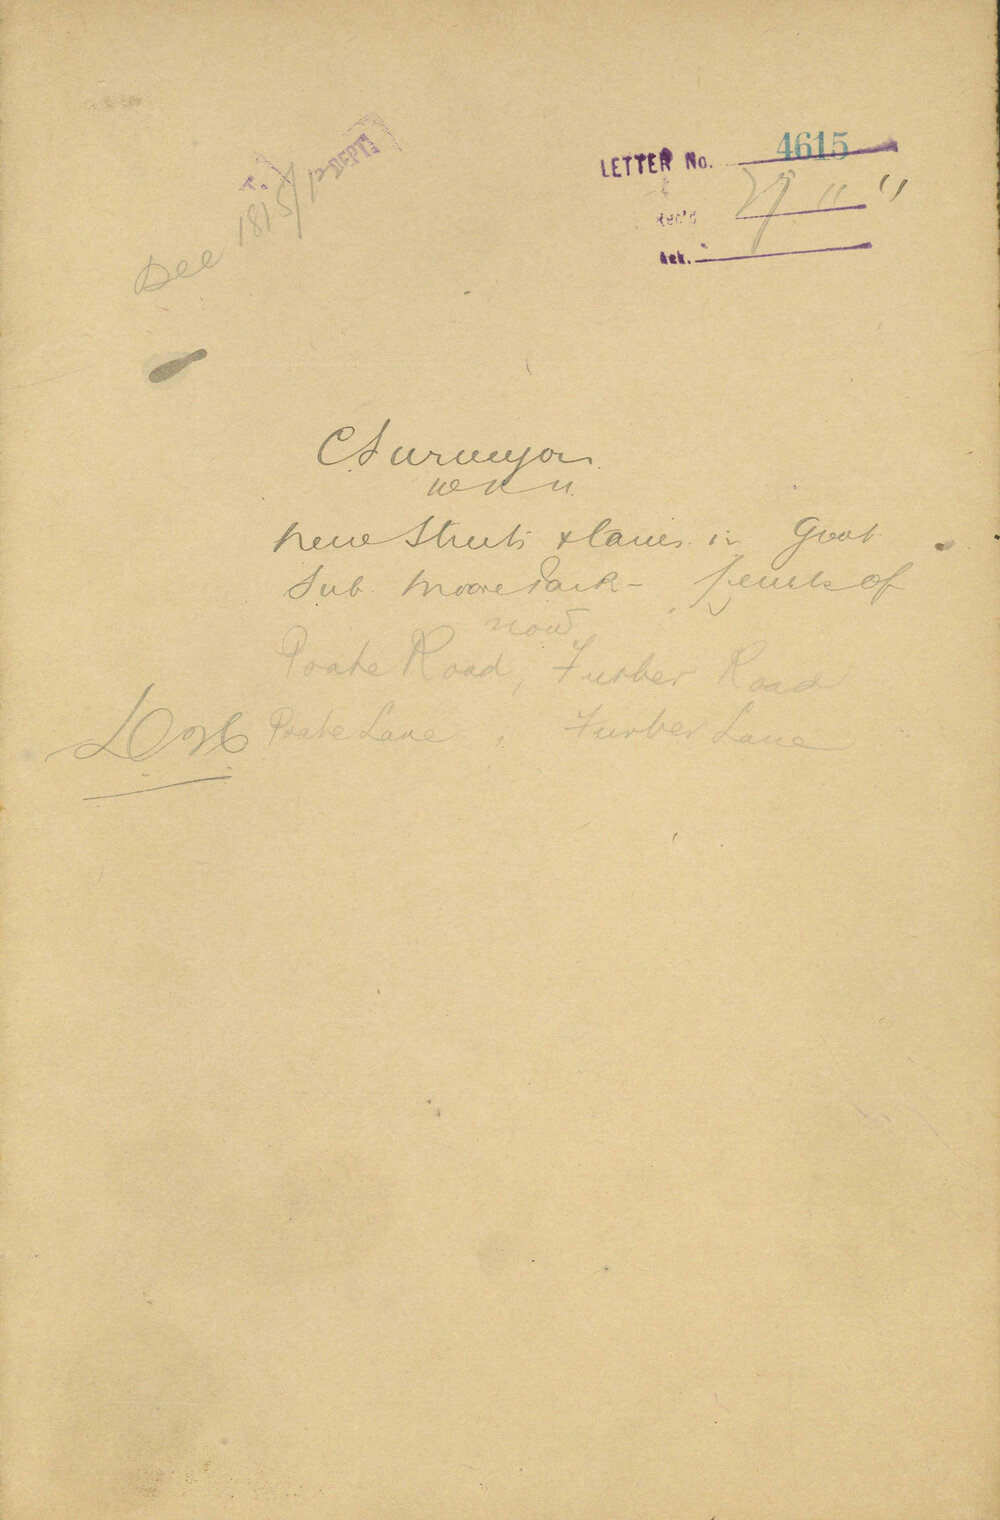 See 1815/12
DEPT.
LETTER No. 4615
Rec'd 29 " "
Ack.
C Surveyor
New Streets & lanes in Govt
Sub Moore Park - of
now
Poate Road, Furber Road
Poate Lane, Furber Lane